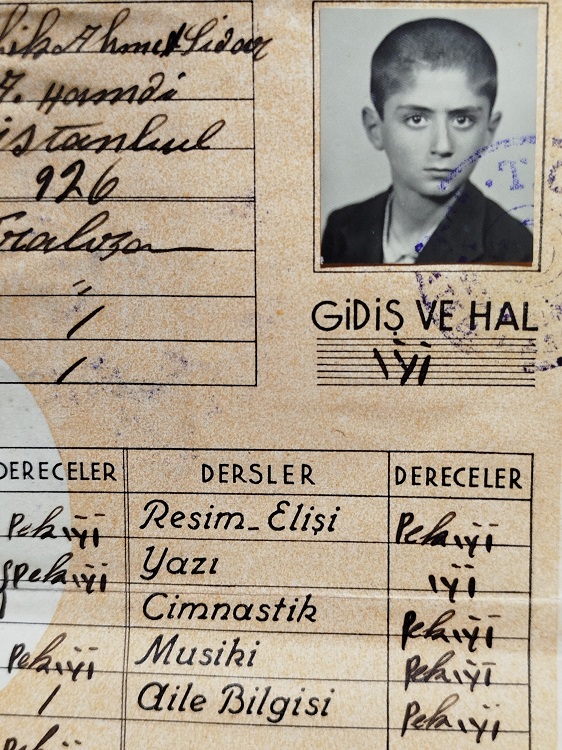 Ahmet Sidar
A. Hamdi
istanbul
926
Trabzon
"
/
/
GiDiŞ VE HAL
iyi
T
DERECELER DERSLER DERECELER
Pekiyi Resim_Elişi Pekiyi
Pekiyi Yazı iyi
Cimnastik Pekiyi
Pekiyi Musiki Pekiyi
/ Aile Bilgisi Pekiyi